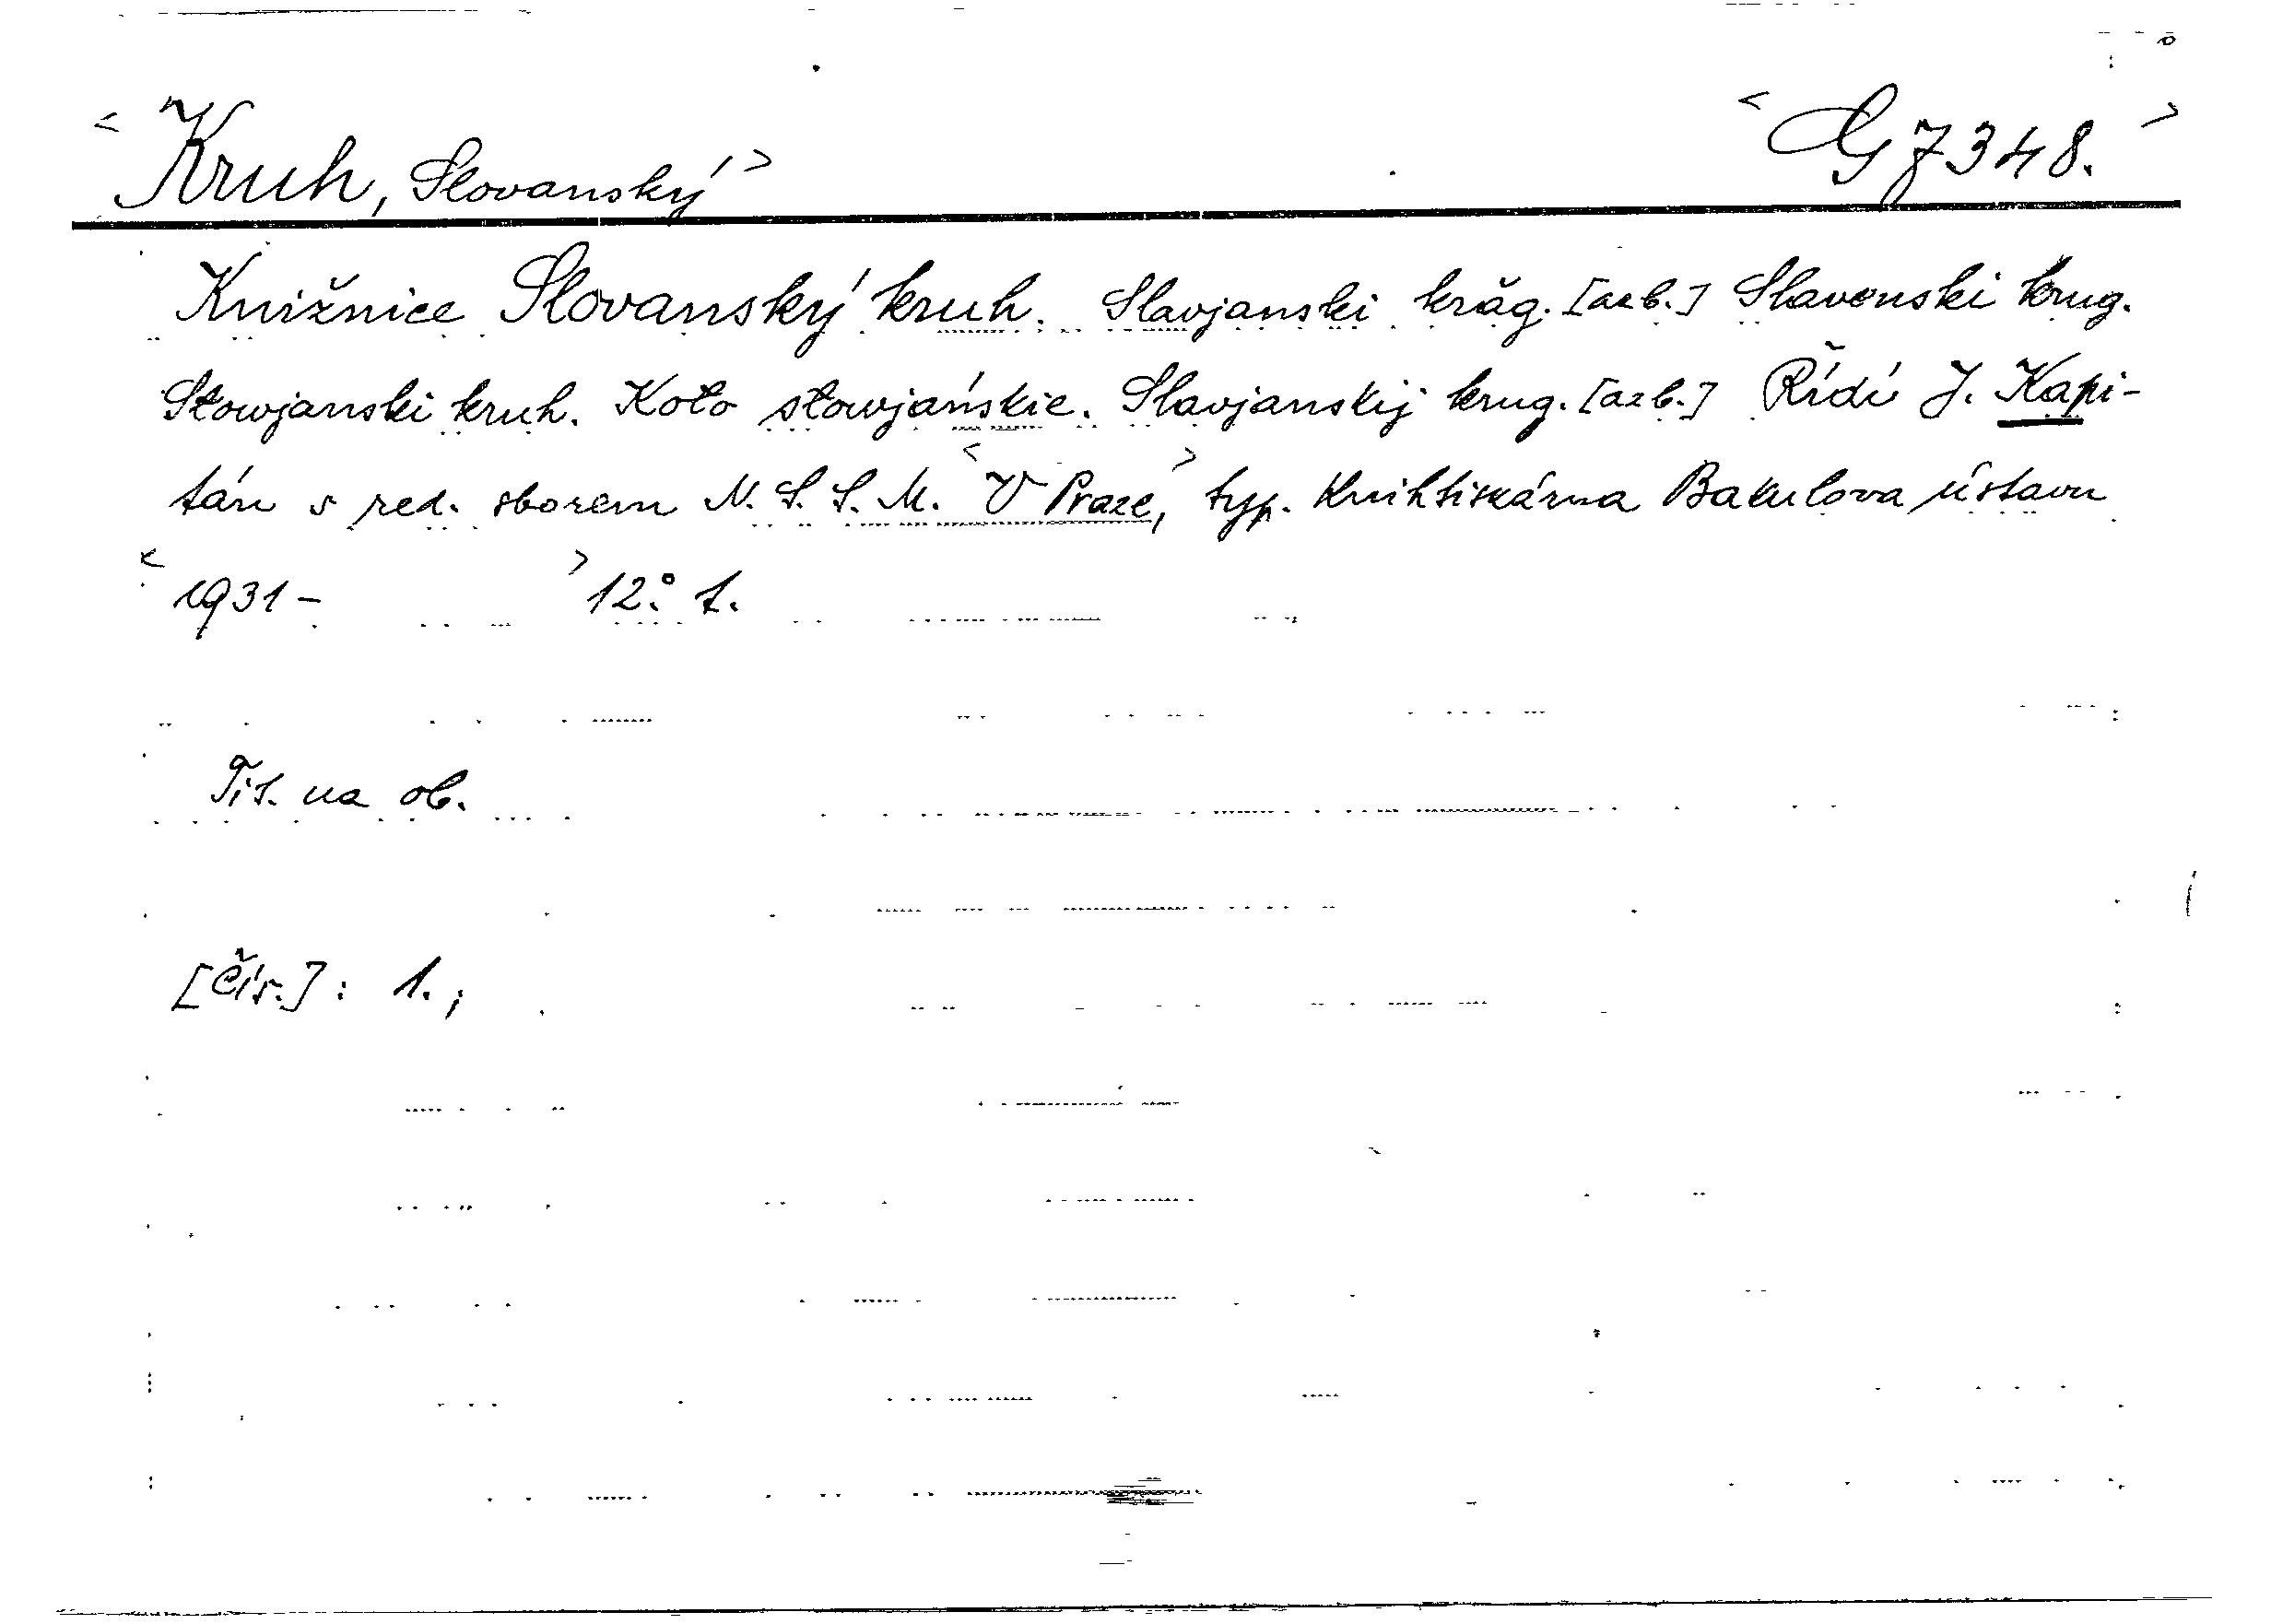 <Kruh, Slovanský> <G 7348.>
Knižnice Slovanský kruh. Slavjanski krăg. [azb.] Slavenski krug.
Słowjanski kruh. Koło słowjańskie. Slavjanskij krug. [azb.] Řídí J. Kapi-
tán s red. sborem N. S. S. M. <V Praze,> typ. Knihtiskárna Bakulova ústavu
<1931- > 12°. 1.
Tit. na ob.
[Čís.]: 1.;